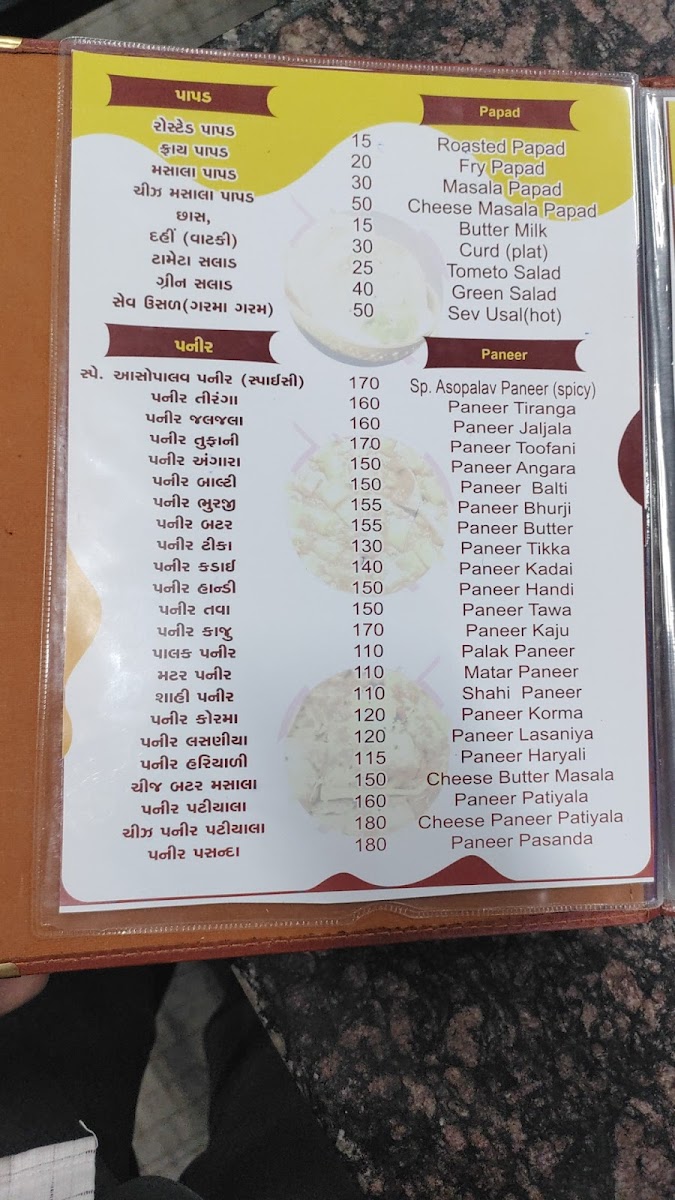 પાપડ Papad
રોસ્ટેડ પાપડ 15 Roasted Papad
ફ્રાય પાપડ 20 Fry Papad
મસાલા પાપડ 30 Masala Papad
ચીઝ મસાલા પાપડ 50 Cheese Masala Papad
છાસ, 15 Butter Milk
દહીં (વાટકી) 30 Curd (plat)
ટામેટા સલાડ 25 Tometo Salad
ગ્રીન સલાડ 40 Green Salad
સેવ ઉસળ(ગરમા ગરમ) 50 Sev Usal(hot)
પનીર Paneer
સ્પે. આસોપાલવ પનીર (સ્પાઈસી) 170 Sp. Asopalav Paneer (spicy)
પનીર તીરંગા 160 Paneer Tiranga
પનીર જલજલા 160 Paneer Jaljala
પનીર તુફાની 170 Paneer Toofani
પનીર અંગારા 150 Paneer Angara
પનીર બાલ્ટી 150 Paneer Balti
પનીર ભુરજી 155 Paneer Bhurji
પનીર બટર 155 Paneer Butter
પનીર ટીકા 130 Paneer Tikka
પનીર કડાઈ 140 Paneer Kadai
પનીર હાન્ડી 150 Paneer Handi
પનીર તવા 150 Paneer Tawa
પનીર કાજુ 170 Paneer Kaju
પાલક પનીર 110 Palak Paneer
મટર પનીર 110 Matar Paneer
શાહી પનીર 110 Shahi Paneer
પનીર કોરમા 120 Paneer Korma
પનીર લસણીયા 120 Paneer Lasaniya
પનીર હરિયાળી 115 Paneer Haryali
ચીજ બટર મસાલા 150 Cheese Butter Masala
પનીર પટીયાલા 160 Paneer Patiyala
ચીઝ પનીર પટીયાલા 180 Cheese Paneer Patiyala
પનીર પસન્દા 180 Paneer Pasanda